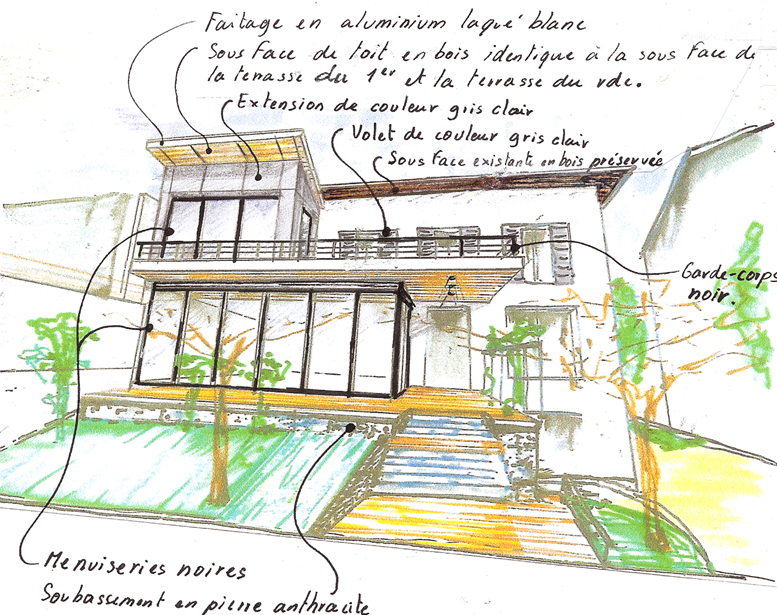 Faitage en aluminium laqué blanc
Sous face de toit en bois identique à la sous face de
la terrasse du 1er et la terrasse du rdc.
Extension de couleur gris clair
Volet de couleur gris clair
Sous face existante en bois préservée
Garde-corps
noir.
Menuiseries noires
Soubassement en pierre anthracite